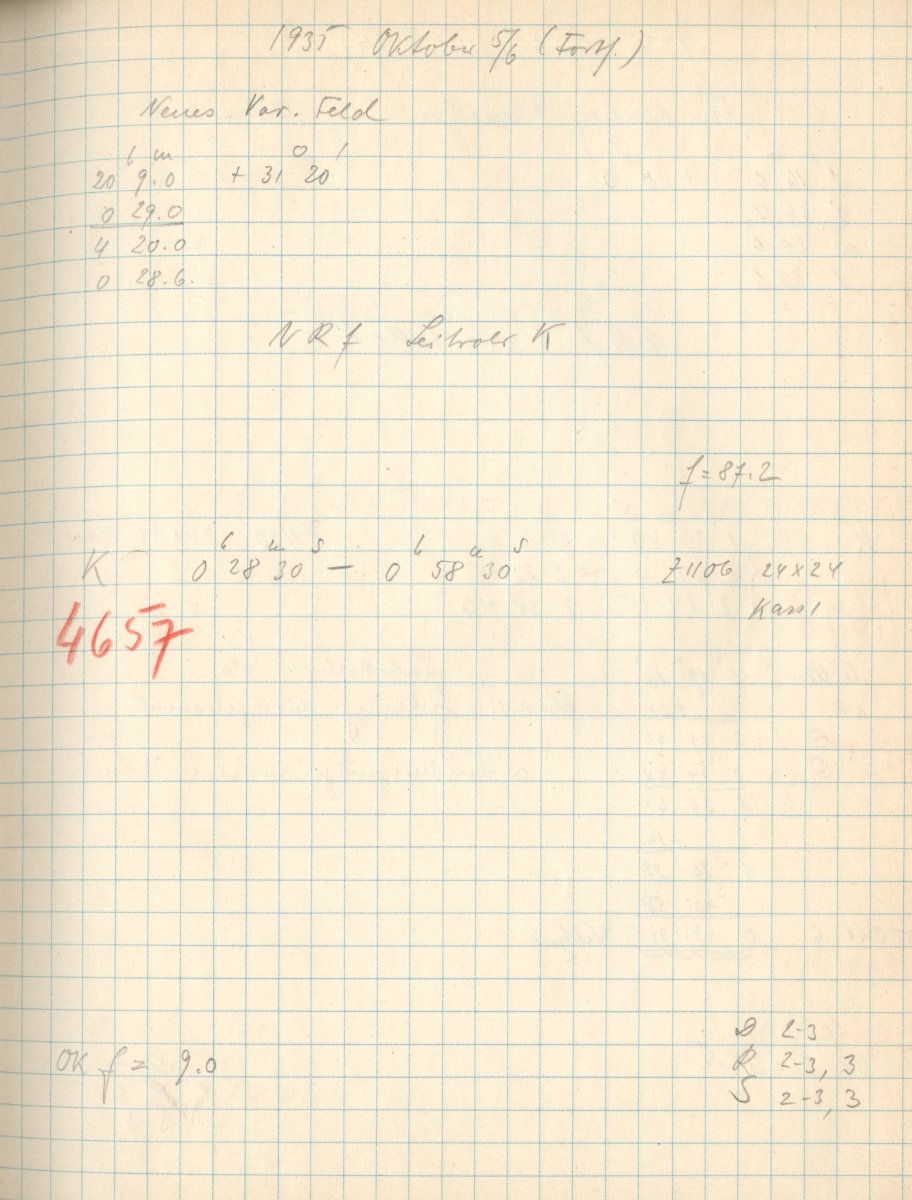 1935 Oktober 5/6 (Forts.)
Neues Var. Feld
h m o '
20 9.0 + 31 20
0 29.0
4 20.0
0 28.6.
NRf Leitrohr K
f = 87.2
K - 0h 28m 30s — 0h 58m 30s Z1106 24x24
Kass 1
4657
D 2-3
OK f = 9.0 R 2-3, 3
S 2-3, 3